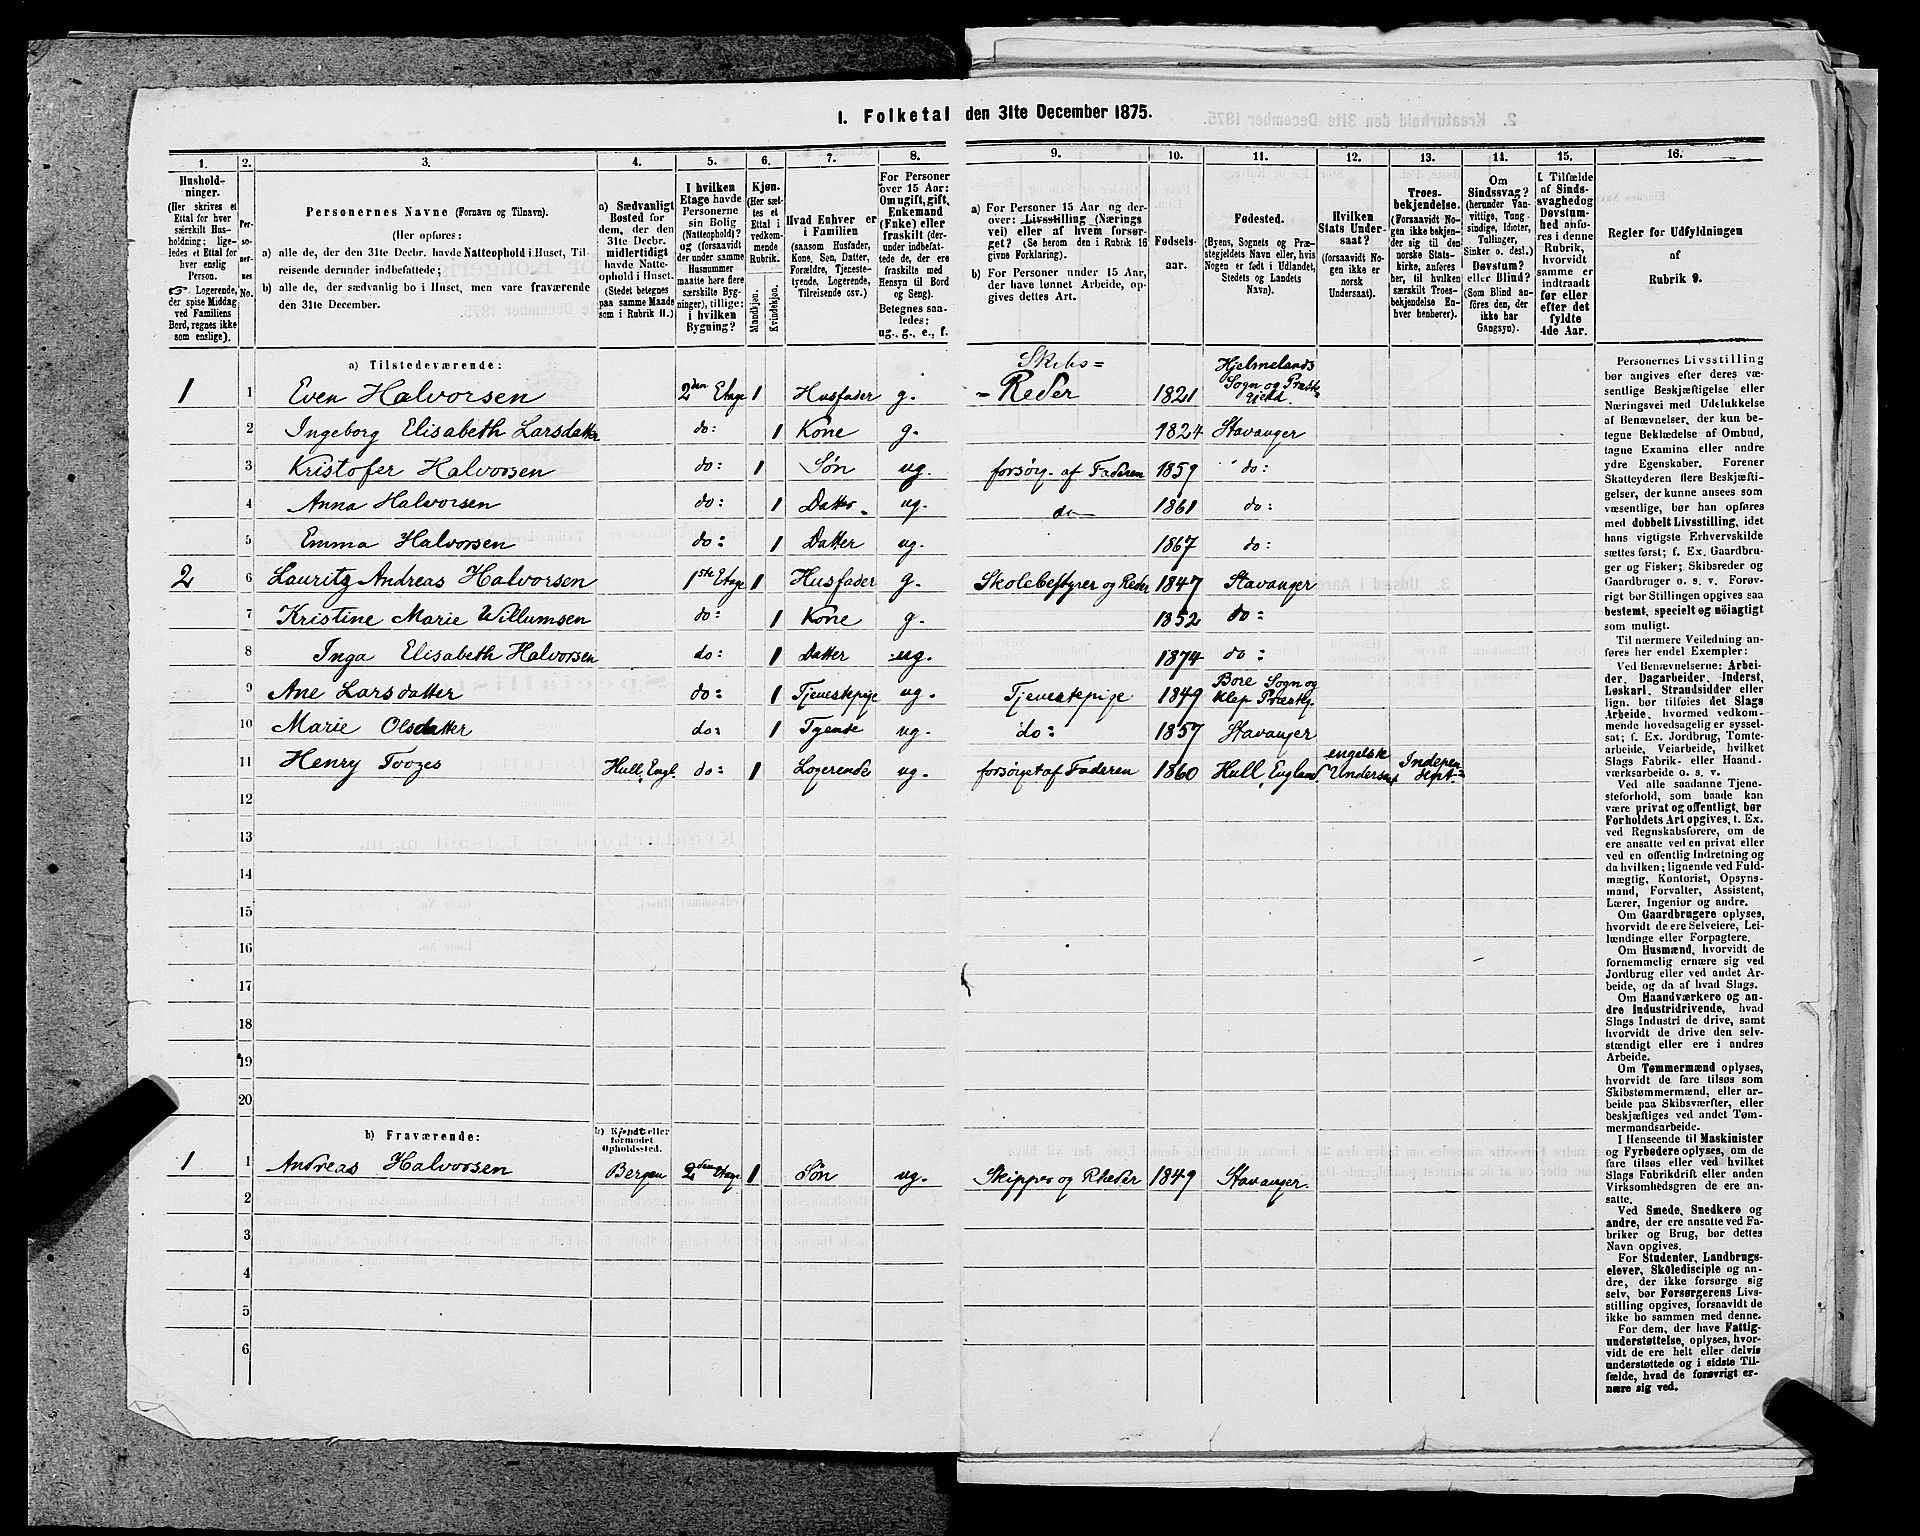 1. Folketal den 31te December 1875.
1. 2. 3. 4. 5. 6. 7. 8. 9. 10. 11. 12. 13. 14. 15. 16.
Husholdninger.
(Her skrives et
Ettal for hver
særskilt Husholdning;
ligeledes et Ettal for
hver enslig
Person.
Logerende,
der spise Middag
ved Familiens
Bord, regnes ikke
som enslige).
Personernes No.
Personernes Navne (Fornavn og Tilnavn).
(Her opføres:
a) alle de, der den 31te Decbr. havde Natteophold i Huset, Tilreisende
derunder indbefattede;
b) alle de, der sædvanlig bo i Huset, men vare fraværende
den 31te December.
a) Sædvanligt
Bosted for
dem, der den
31te Decbr.
midlertidigt
havde Natteophold
i Huset.
(Stedet betegnes
paa samme Maade
som i Rubrik 11.)
I hvilken
Etage havde
Personerne
sin Bolig
(Natteophold)?
og (forsaavidt
der under samme
Husnummer
maatte høre flere
særskilte Bygninger),
tillige:
i hvilken
Bygning?
Kjøn.
(Her sættes
et
Ettal i
vedkommende
Rubrik.
Mandkjøn.
Kvindekjøn.
Hvad Enhver er
i Familien
(saasom Husfader,
Kone, Søn, Datter,
Forældre, Tjenestetyende,
Logerende,
Tilreisende osv.)
For Personer
over 15 Aar:
Om ugift, gift,
Enkemand
(Enke) eller
fraskilt (derunder
indbefattede
de, der ere
fraskilte med
Hensyn til Bord
og Seng).
Betegnes saaledes:
ug., g., e., f.
a) For Personer 15 Aar og derover:
Livsstilling (Næringsvei)
eller af hvem forsørget?
(Se herom den i Rubrik 16
givne Forklaring).
b) For Personer under 15 Aar,
der have lønnet Arbeide, opgives
dettes Art.
Fødselsaar.
Fødested.
(Byens, Sognets og Præstegjeldets
Navn eller, hvis
Nogen er født i Udlandet,
Stedets og Landets
Navn).
Hvilken
Stats Undersaat?
(forsaavidt Nogen
ikke er
norsk
Undersaat).
Troesbekjendelse.
(Forsaavidt Nogen
ikke bekjender
sig til den
norske Statskirke,
anføres
her, til hvilken
særskilt Troesbekjendelse
Enhver
henhører).
Om
Sindssvag?
(herunder Vanvittige,
Tungsindige,
Idioter,
Tullinger,
Sinker o. desl.)
Døvstum?
eller Blind?
(Som Blind anføres
den, der
ikke har
Gangsyn).
I Tilfælde
af Sindssvaghed
og
Døvstumhed
anføres
i denne
Rubrik,
hvorvidt
samme er
indtraadt
før eller
efter det
fyldte
4de Aar.
Regler for Udfyldningen
af
Rubrik 9.
a) Tilstedeværende:
1 1 Even Halvorsen 2den Etage 1 Husfader g. Skibs= =Reder 1821 Hjelmelands Sogn og Præstegjeld.
2 Ingeborg Elisabeth Larsdatter do: 1 Kone g. 1824 Stavanger
3 Kristofer Halvorsen do: 1 Søn ug. forsørg. af Faderen 1859 do:
4 Anna Halvorsen do: 1 Datter. ug. do 1861 do:
5 Emma Halvorsen do: 1 Datter ug. 1867 do:
2 6 Lauritz Andreas Halvorsen 1ste Etage 1 Husfader g. Skolebestyrer og Reder 1847 Stavanger
7 Kristine Marie Willumsen do: 1 Kone g. 1852 do:
8 Inga Elisabeth Halvorsen do: 1 Datter ug. 1874 do:
9 Ane Larsdatter do: 1 Tjenestepige ug. Tjenestepige 1849 Bore Sogn og Klep Præstgj.
10 Marie Olsdatter do: 1 Tyende ug. do: 1857 Stavanger
11 Henry Toozes Hull, Engl. do: 1 Logerende ug. forsørget af Faderen 1860 Hull, England engelsk Undersaat Independent
12
13
14
15
16
17
18
19
20
b) Fraværende:
b) Kjendt eller
formodet
Opholdssted.
1 1 Andreas Halvorsen Bergen 2den Etage 1 Søn ug. Skipper og Rheder 1849 Stavanger.
2
3
4
5
6
Personernes Livsstilling
bør angives efter deres væsentlige
Beskjæftigelse eller
Næringsvei med Udelukkelse
af Benævnelser, der kun betegne
Beklædelse af Ombud,
tagne Examina eller andre
ydre Egenskaber. Forener
Skatteyderen flere Beskjæftigelser,
der kunne ansees som
væsentlige, bør han opføres
med dobbelt Livsstilling, idet
hans vigtigste Erhvervskilde
sættes først; f. Ex. Gaardbruger
og Fisker; Skibsreder og
Gaardbruger o. s. v. Forøvrigt
bør Stillingen opgives saa
bestemt, specielt og nöiagtigt
som muligt.
Til nærmere Veiledning anføres
her endel Exempler:
Ved Benævnelserne: Arbeider,
Dagarbeider, Inderst,
Løskarl, Strandsidder eller
lign. bør tilføies det Slags
Arbeide, hvormed vedkommende
hovedsagelig er sysselsat;
f. Ex. Jordbrug, Tomtearbeide,
Veiarbeide, hvilket
Slags Fabrik- eller Haandværksarbeide
o. s. v.
Ved alle saadanne Tjenesteforhold,
som baade kan
være privat og offentligt, bør
Forholdets Art opgives, f. Ex.
ved Regnskabsførere, om de
ere ansatte ved en privat eller
ved en offentlig Indretning og
da hvilken; lignende ved Fuldmægtig,
Kontorist, Opsynsmand,
Forvalter, Assistent,
Lærer, Ingeniør og andre.
Om Gaardbrugere oplyses,
hvorvidt de ere Selveiere, Leilændinge
eller Forpagtere.
Om Husmænd, hvorvidt de
fornemmelig ernære sig ved
Jordbrug eller ved andet Arbeide,
og da af hvad Slags.
Om Haandværkere og andre
Industridrivende, hvad
Slags Industri de drive, samt
hvorvidt de drive den selvstændigt
eller ere i andres
Arbeide.
Om Tømmermænd oplyses,
hvorvidt de fare tilsøs som
Skibstømmermænd, eller arbeide
paa Skibsværfter, eller
beskjæftiges ved andet Tømmermandsarbeide.
I Henseende til Maskinister
og Fyrbødere oplyses, om de
fare tilsøs eller ved hvilket
Slags Fabrikdrift eller anden
Virksomhedsgren de ere ansatte.
Ved Smede, Snedkere og
andre, der ere ansatte ved Fabriker
og Brug, bør dettes
Navn opgives.
For Studenter, Landbrugselever,
Skoledisciple og andre,
der ikke forsørge sig
selv, bør Forsørgerens Livsstilling
opgives, forsaavidt de
ikke bo sammen med denne.
For dem, der have Fattigunderstøttelse,
oplyses, hvorvidt
de ere helt eller delvis
understøttede og i sidste Tilfælde,
hvad de forøvrigt ernære
sig ved.